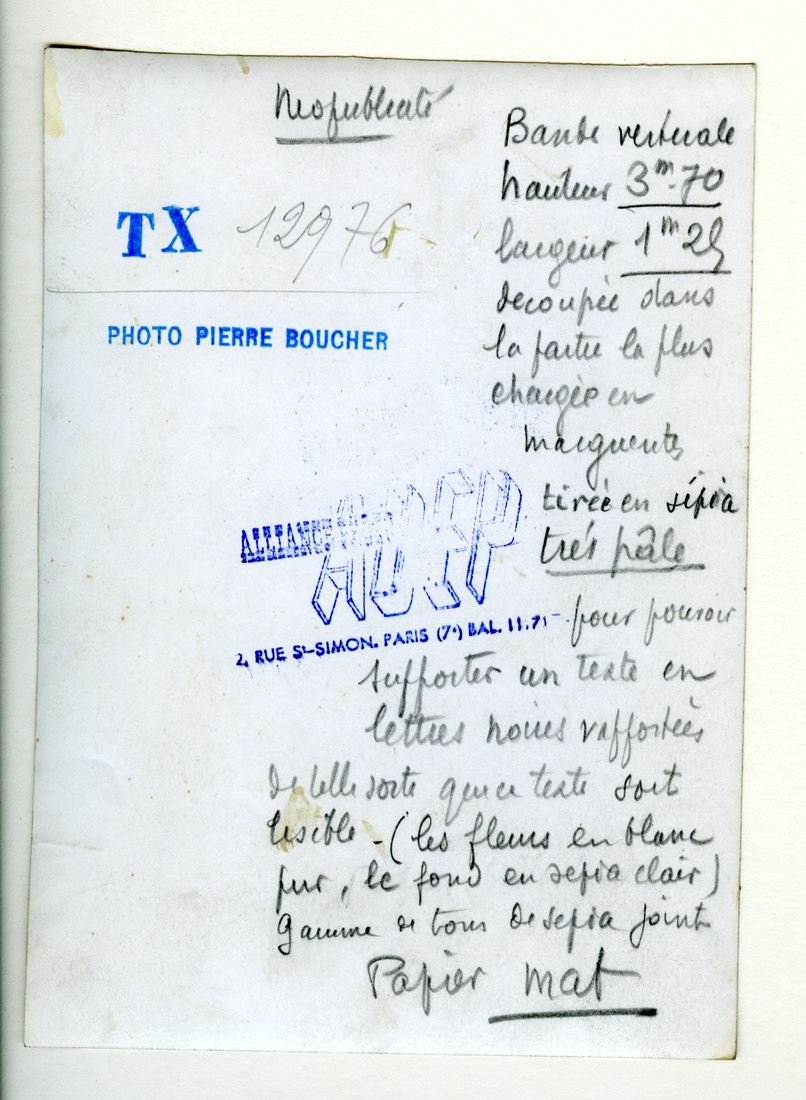 Neopublicité
TX 12976
PHOTO PIERRE BOUCHER
Bande verticale
hauteur 3m.70
largeur 1m25
decoupée dans
la partie la plus
chargée en
marguerites
tirée en sépia
très pâle
pour pouvoir
supporter un texte en
lettres noires rapportées
de telle sorte que ce texte soit
lisible - (les fleurs en blanc
pur, le fond en sepia clair)
gamme de tons de sepia joint
Papier mat
ALLIANCE
ADEP
2, RUE St-SIMON. PARIS (7e) BAL. 11.71